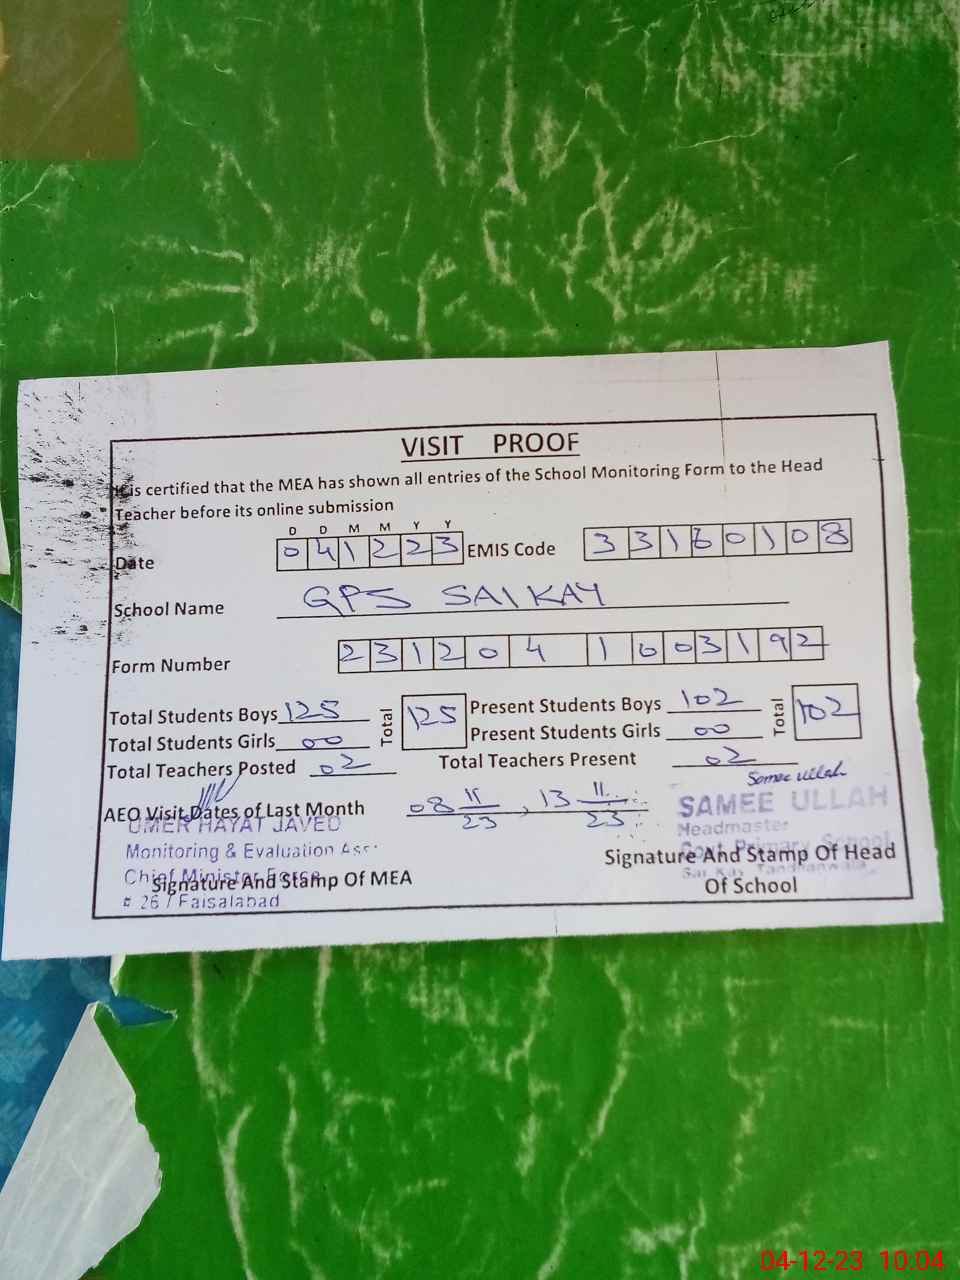 VISIT PROOF
It is certified that the MEA has shown all entries of the School Monitoring Form to the Head
Teacher before its online submission
D D M M Y Y
Date 041223 EMIS Code 33160108
School Name GPS SAI KAY
Form Number 231204 1003192
Total Students Boys 125 Total 125 Present Students Boys 102 Total 102
Total Students Girls 00 Present Students Girls 00
Total Teachers Posted 02 Total Teachers Present 02
Samee ullah
AEO Visit Dates of Last Month 08 11/23, 13 11/23
UMER HAYAT JAVED
Monitoring & Evaluation Ass
Chief Minister Force
# 26 / Faisalabad
Signature And Stamp Of MEA
SAMEE ULLAH
Headmaster
Govt Primary School
Sai Kay Tandlianwala
Signature And Stamp Of Head
Of School
04-12-23 10:04